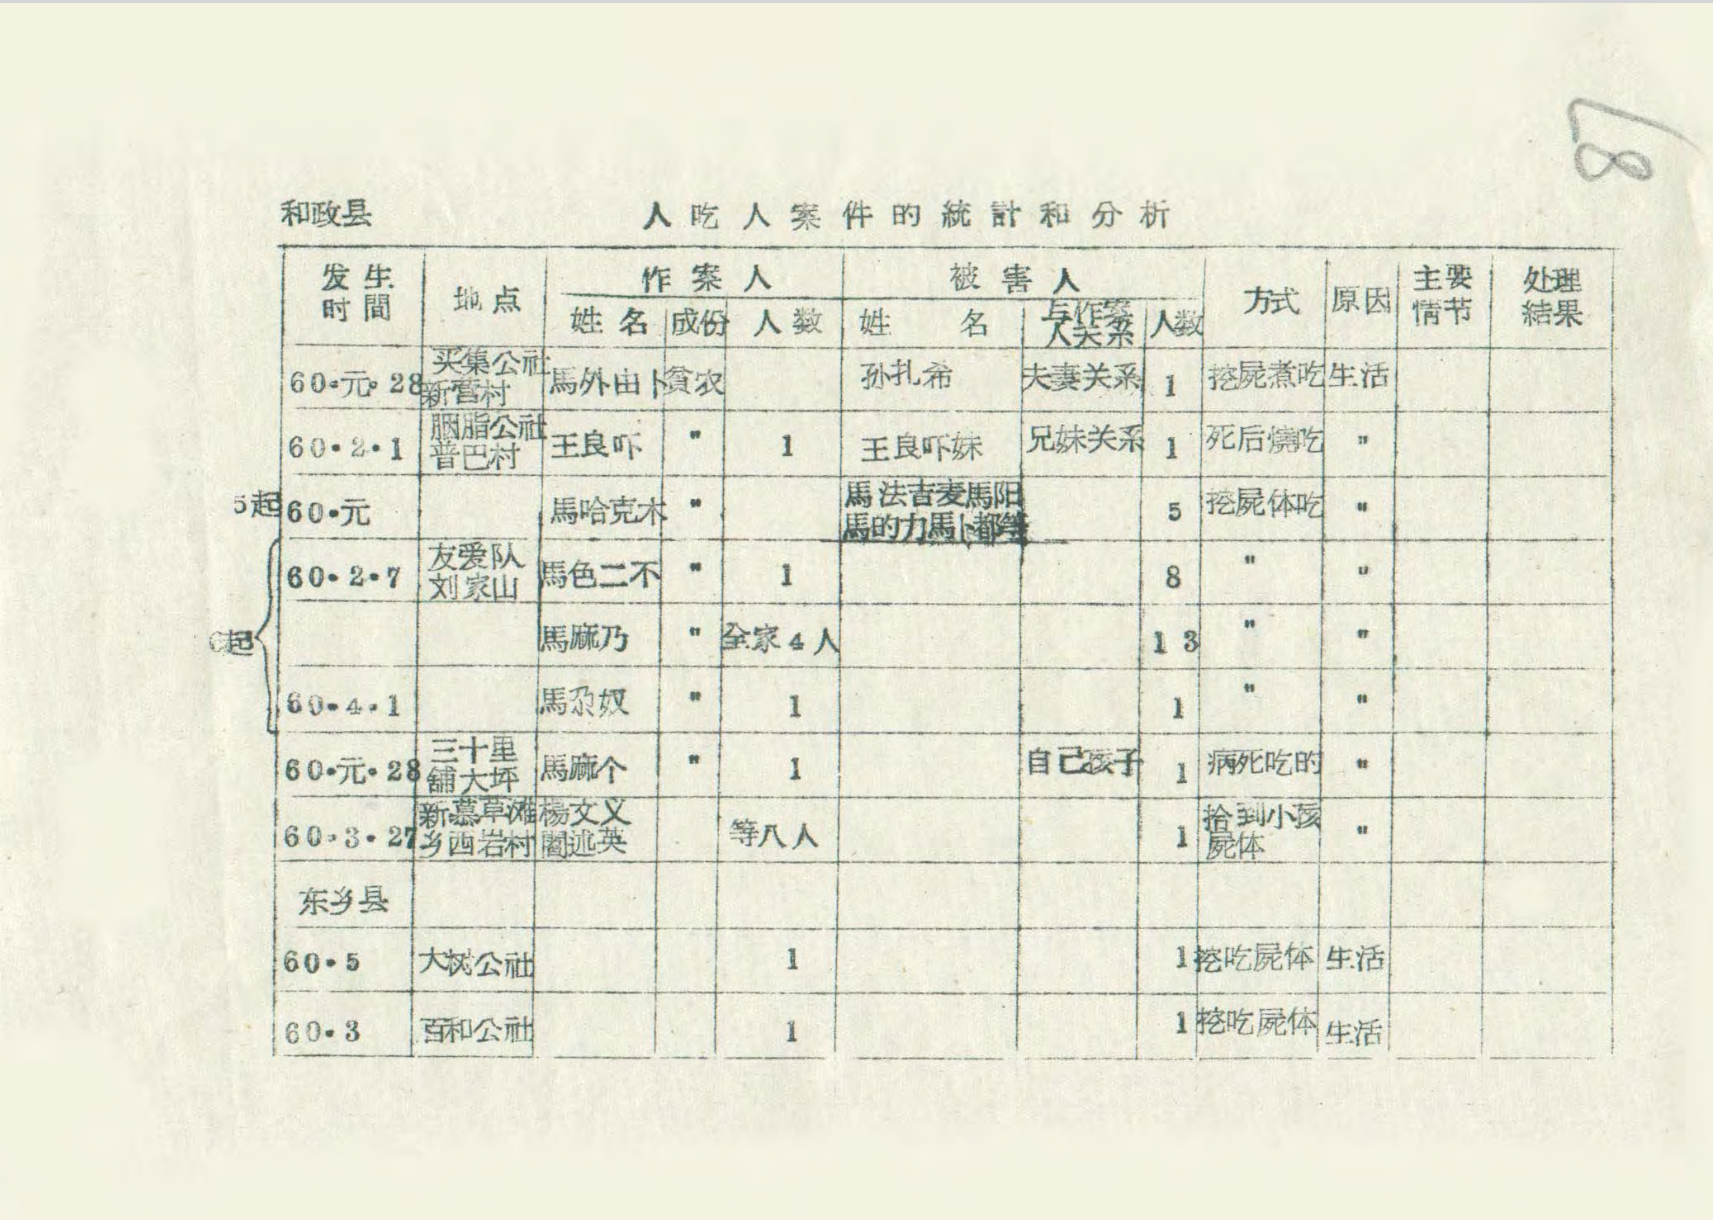 和政县 人吃人案件的統計和分析
发生时間 地点 作案人 被害人 方式 原因 主要情节 处理結果
姓名 成份 人数 姓名 与作案人关系 人数
60·元·28 买集公社新营村 馬外由卜 貧农 孙扎希 夫妻关系 1 挖屍煮吃 生活
60·2·1 胭脂公社普巴村 王良吓 " 1 王良吓妹 兄妹关系 1 死后燒吃 "
5起 60·元 馬哈克木 " 馬法吉麦馬阳馬的力馬卜都等 5 挖屍体吃 "
60·2·7 友爱队刘家山 馬色二不 " 1 8 " "
起 馬麻乃 " 全家4人 13 " "
60·4·1 馬尕奴 " 1 1 " "
60·元·28 三十里舖大坪 馬麻个 " 1 自己孩子 1 病死吃的 "
60·3·27 新慕草滩乡西岩村 楊文义閻述英 等八人 1 拾到小孩屍体 "
东乡县
60·5 大树公社 1 1 挖吃屍体 生活
60·3 百和公社 1 1 挖吃屍体 生活